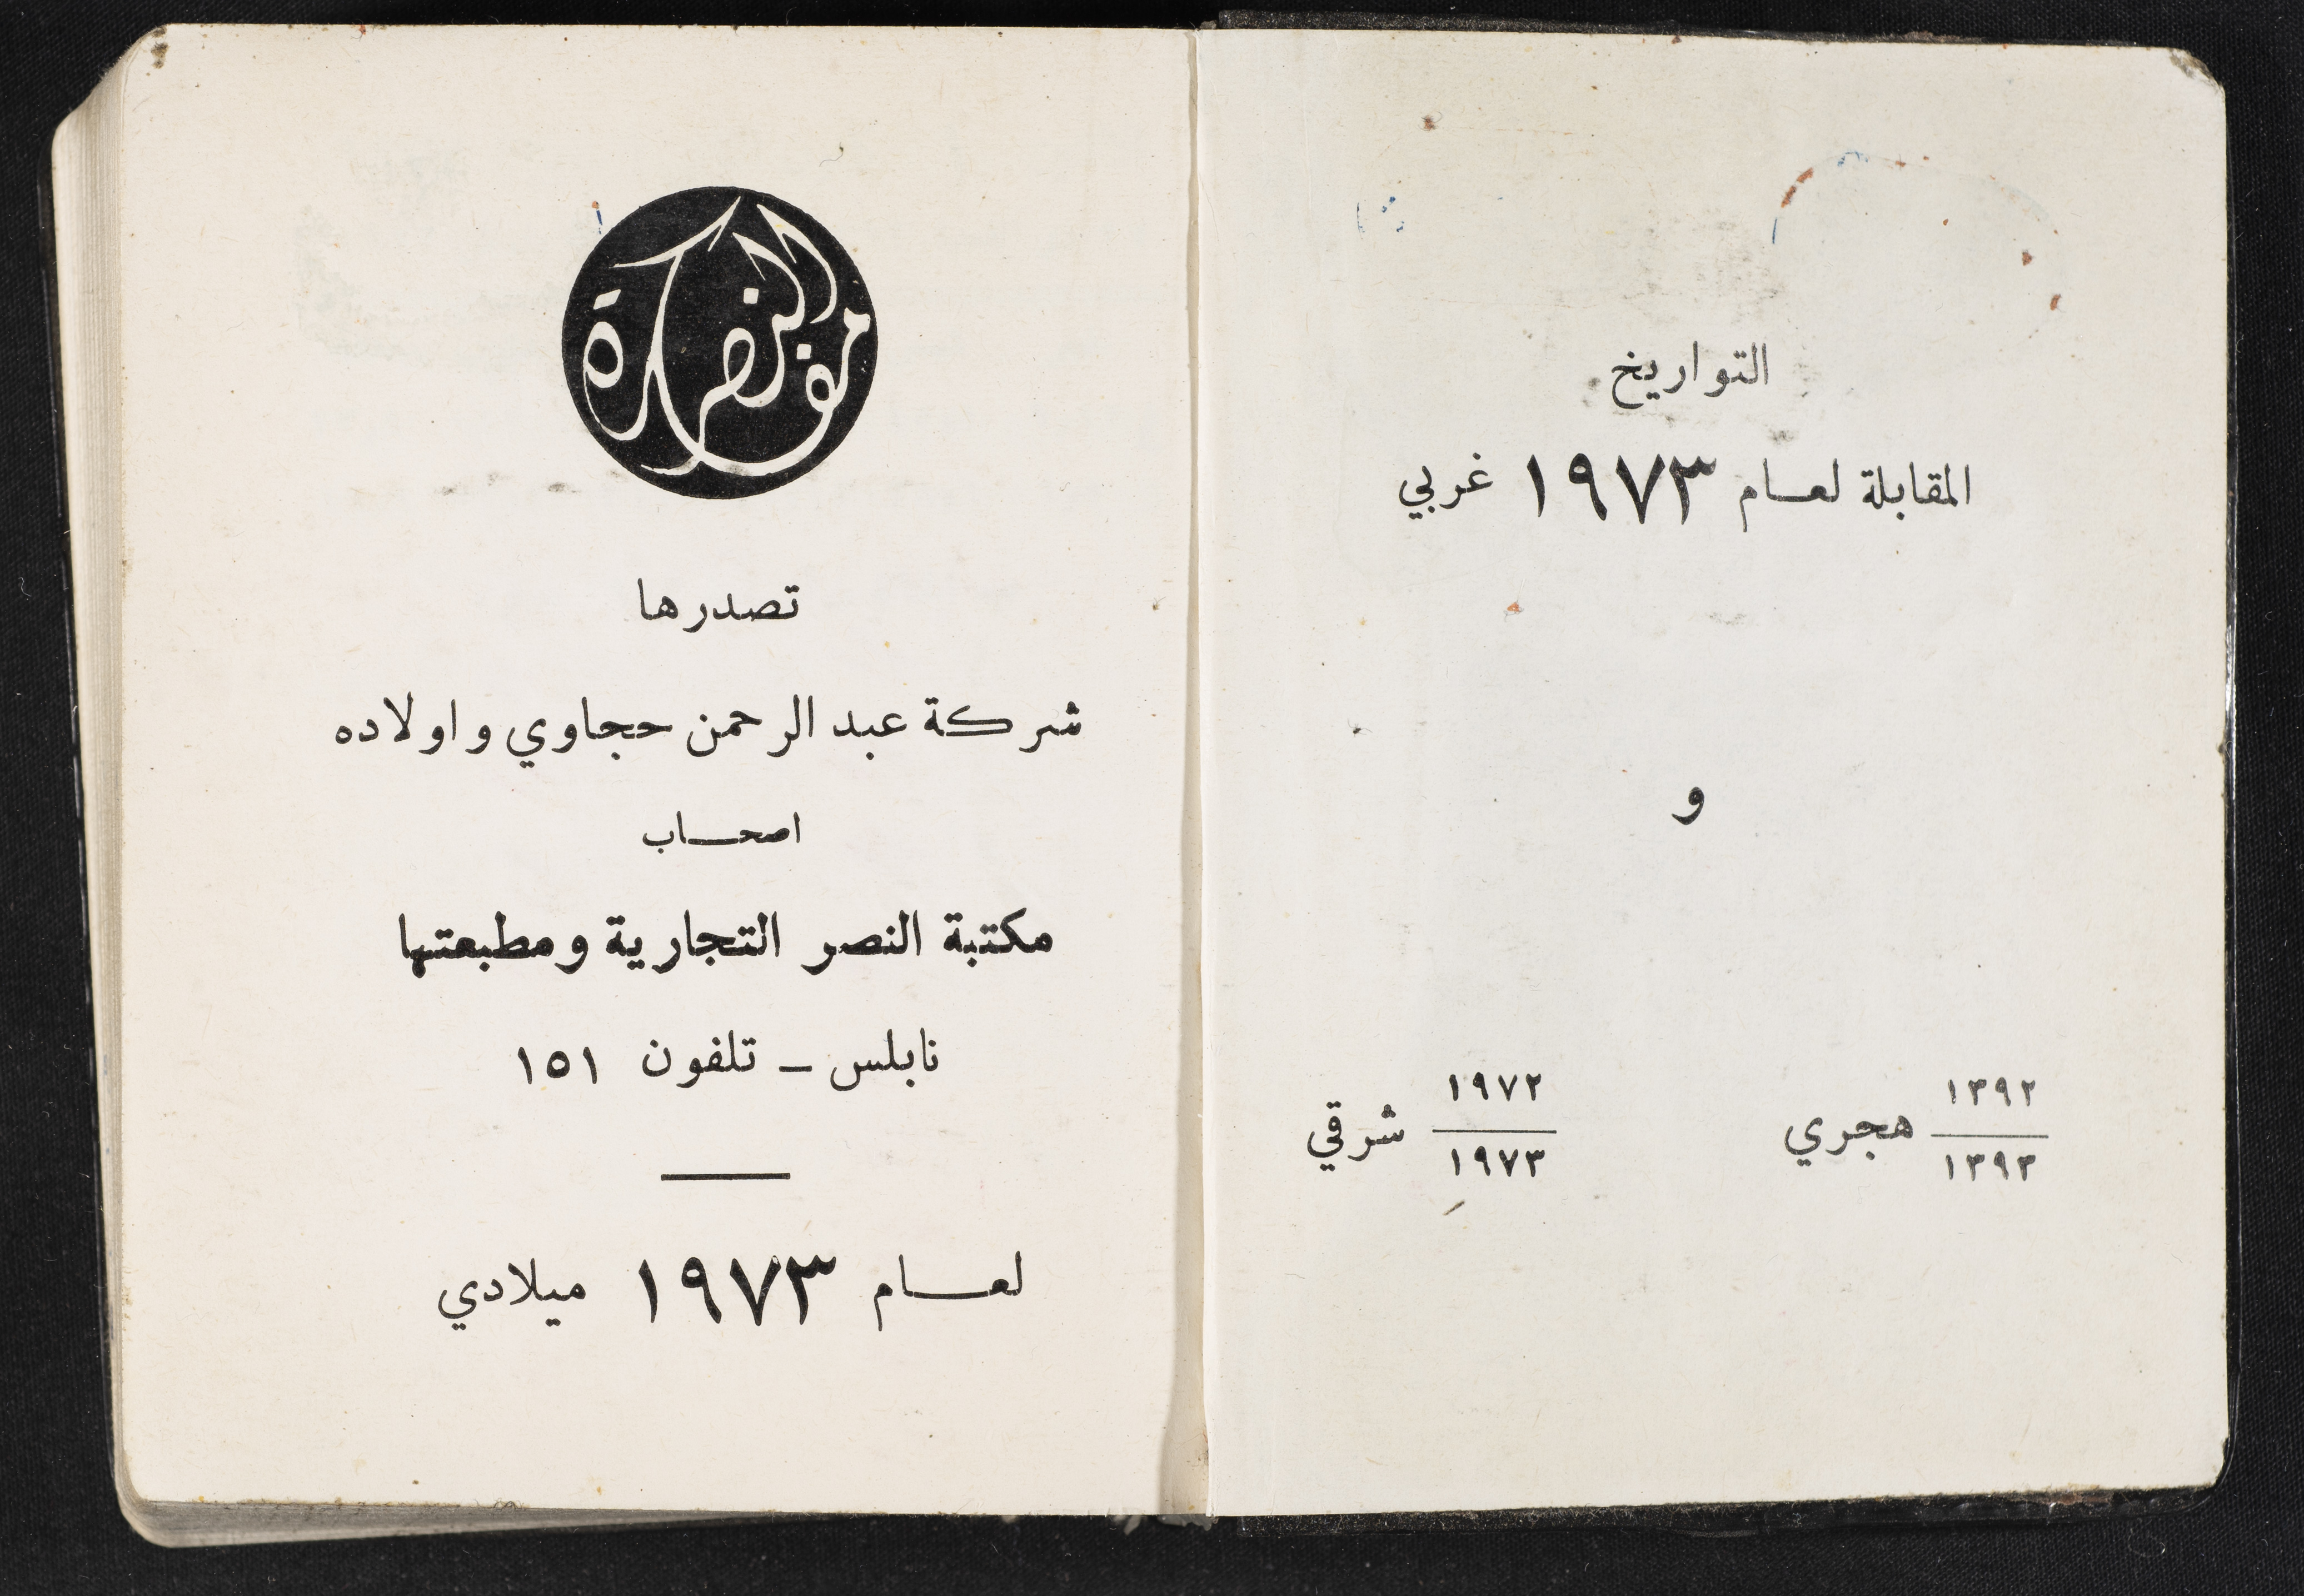 التواريخ
المقابلة لعام ١٩٧٣ غربي
و
١٣٩٢/١٣٩٣ هجري
١٩٧٢/١٩٧٣ شرقي
مفكرة النصر
تصدرها
شركة عبد الرحمن حجاوي واولاده
اصحاب
مكتبة النصر التجارية ومطبعتها
نابلس – تلفون ١٥١
لعام ١٩٧٣ ميلادي